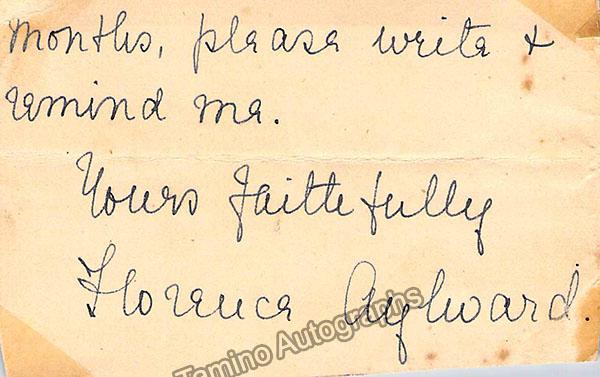 months, please write &
remind me.
Yours faithfully
Florence Aylward.
Tamino Autographs